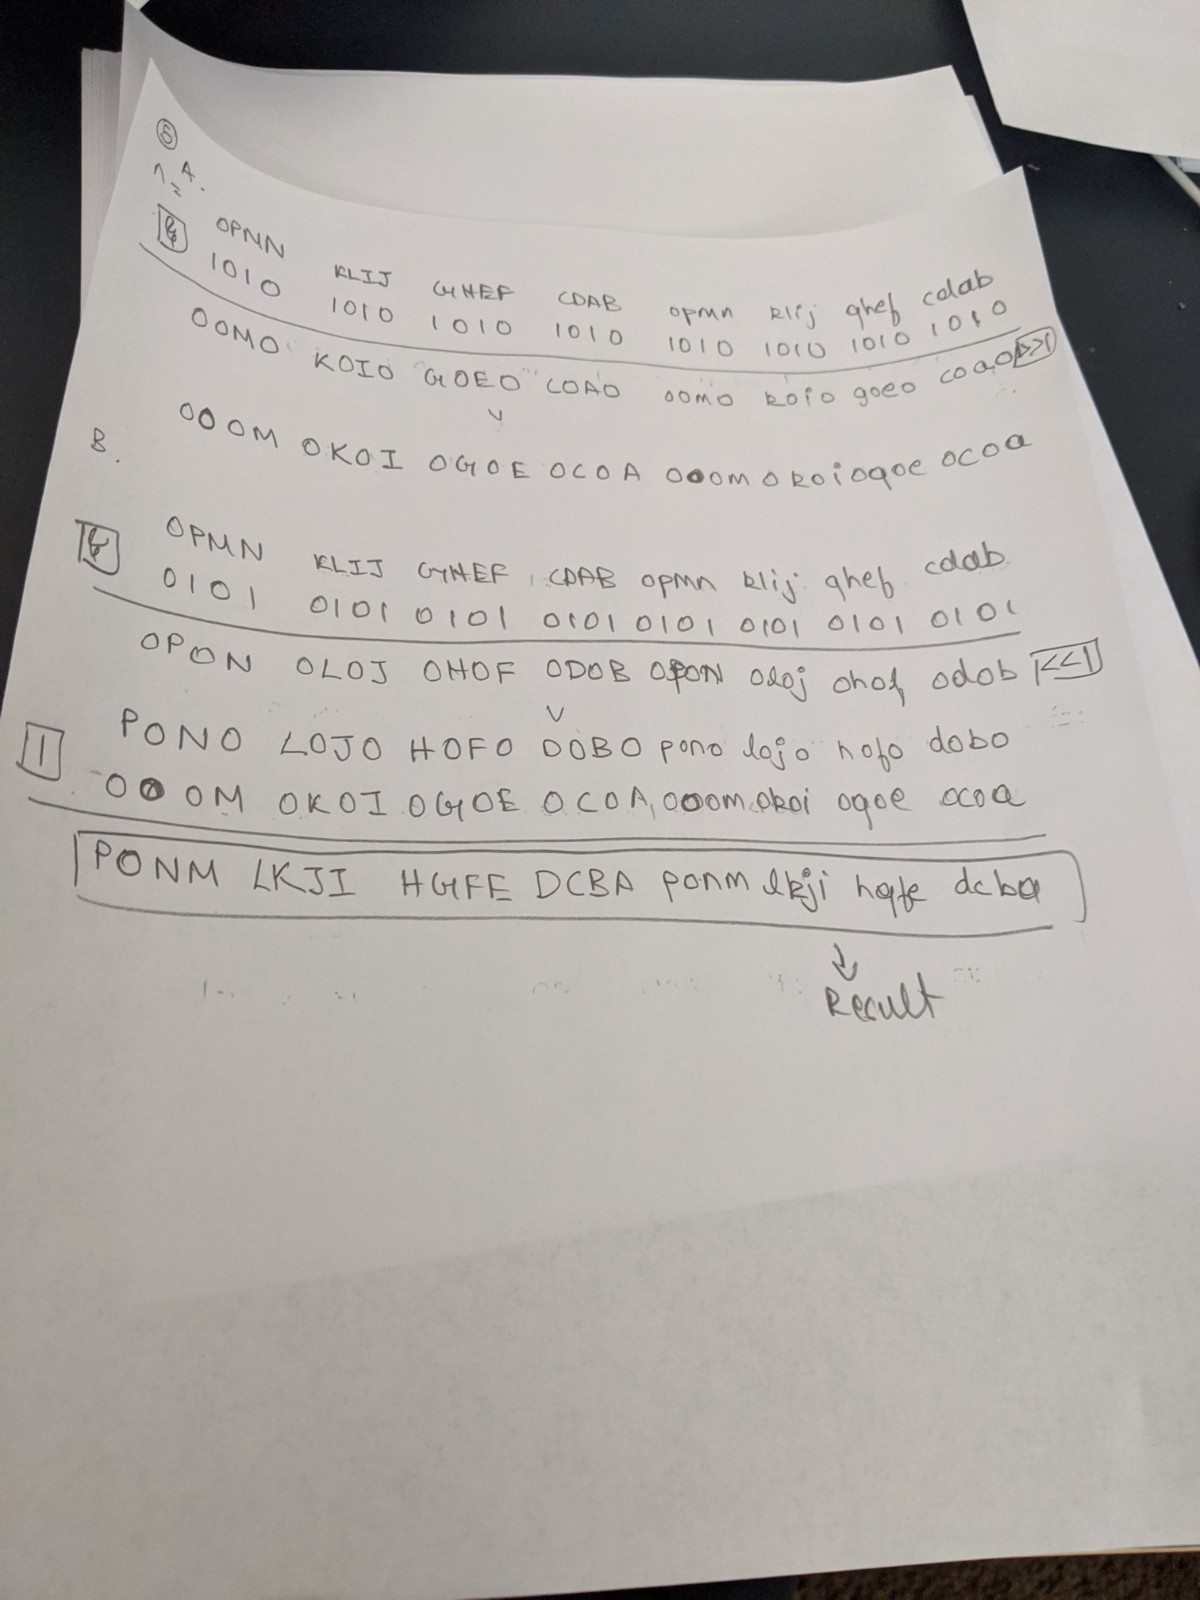 ⑤
A.
OPNN KLIJ GHEF CDAB opmn klij ghef cdab
& 1010 1010 1010 1010 1010 1010 1010 1010
OOMO KOIO GOEO COAO oomo koio goeo coao >>1
OOOM OKOI OGOE OCOA ooom okoi ogoe ocoa
B.
OPMN KLIJ GHEF CDAB opmn klij ghef cdab
& 0101 0101 0101 0101 0101 0101 0101 0101
OPON OLOJ OHOF ODOB OPON oloj ohof odob <<1
PONO LOJO HOFO DOBO pono lojo hofo dobo
| OOOM OKOI OGOE OCOA ooom okoi ogoe ocoa
PONM LKJI HGFE DCBA ponm lkji hgfe dcba
Result